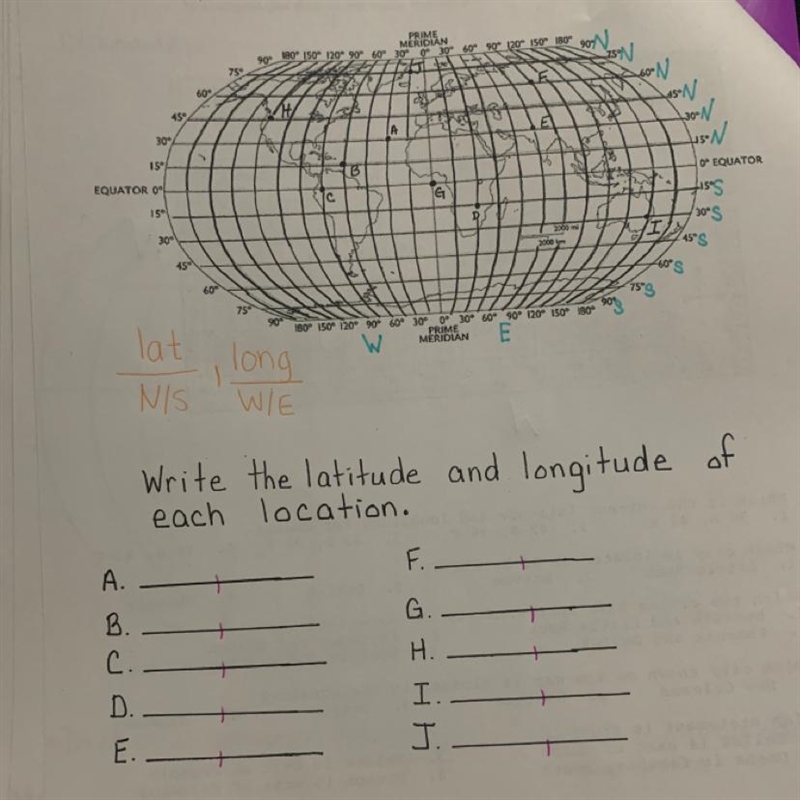 PRIME
MERIDIAN
90° 180° 150° 120° 90° 60° 30° 0° 30° 60° 90° 120° 150° 180° 90° N
75° J 75° N
60° F 60° N
45° H 45° N
30° A E 30° N
15° B 15° N
EQUATOR 0° C G 0° EQUATOR
15° D 15° S
30° I 30° S
2000 mi
2000 km
45° 45° S
60° 60° S
75° 75° S
90° 180° 150° 120° 90° 60° 30° 0° 30° 60° 90° 120° 150° 180° 90° S
PRIME
MERIDIAN
W E
lat , long
N/S W/E
Write the latitude and longitude of
each location.
A. F.
B. G.
C. H.
D. I.
E. J.